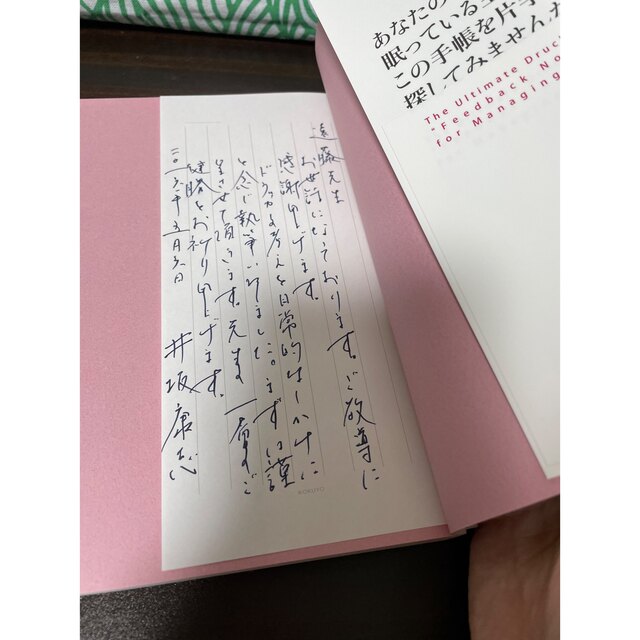 遠藤先生
お世話になっております。ご教導に
感謝申し上げます。
ドラッカーの考えを日常的はしかけに
と念じ執筆いたしました。まずは謹
呈させて頂きます。先生 一層のご
健勝をお祈り申し上げます。
二〇一六年五月六日
井坂康志
KOKUYO
あなたの
眠っている
この手帳を片手
探してみませんか
The Ultimate Druc
"Feedback No
for Managing